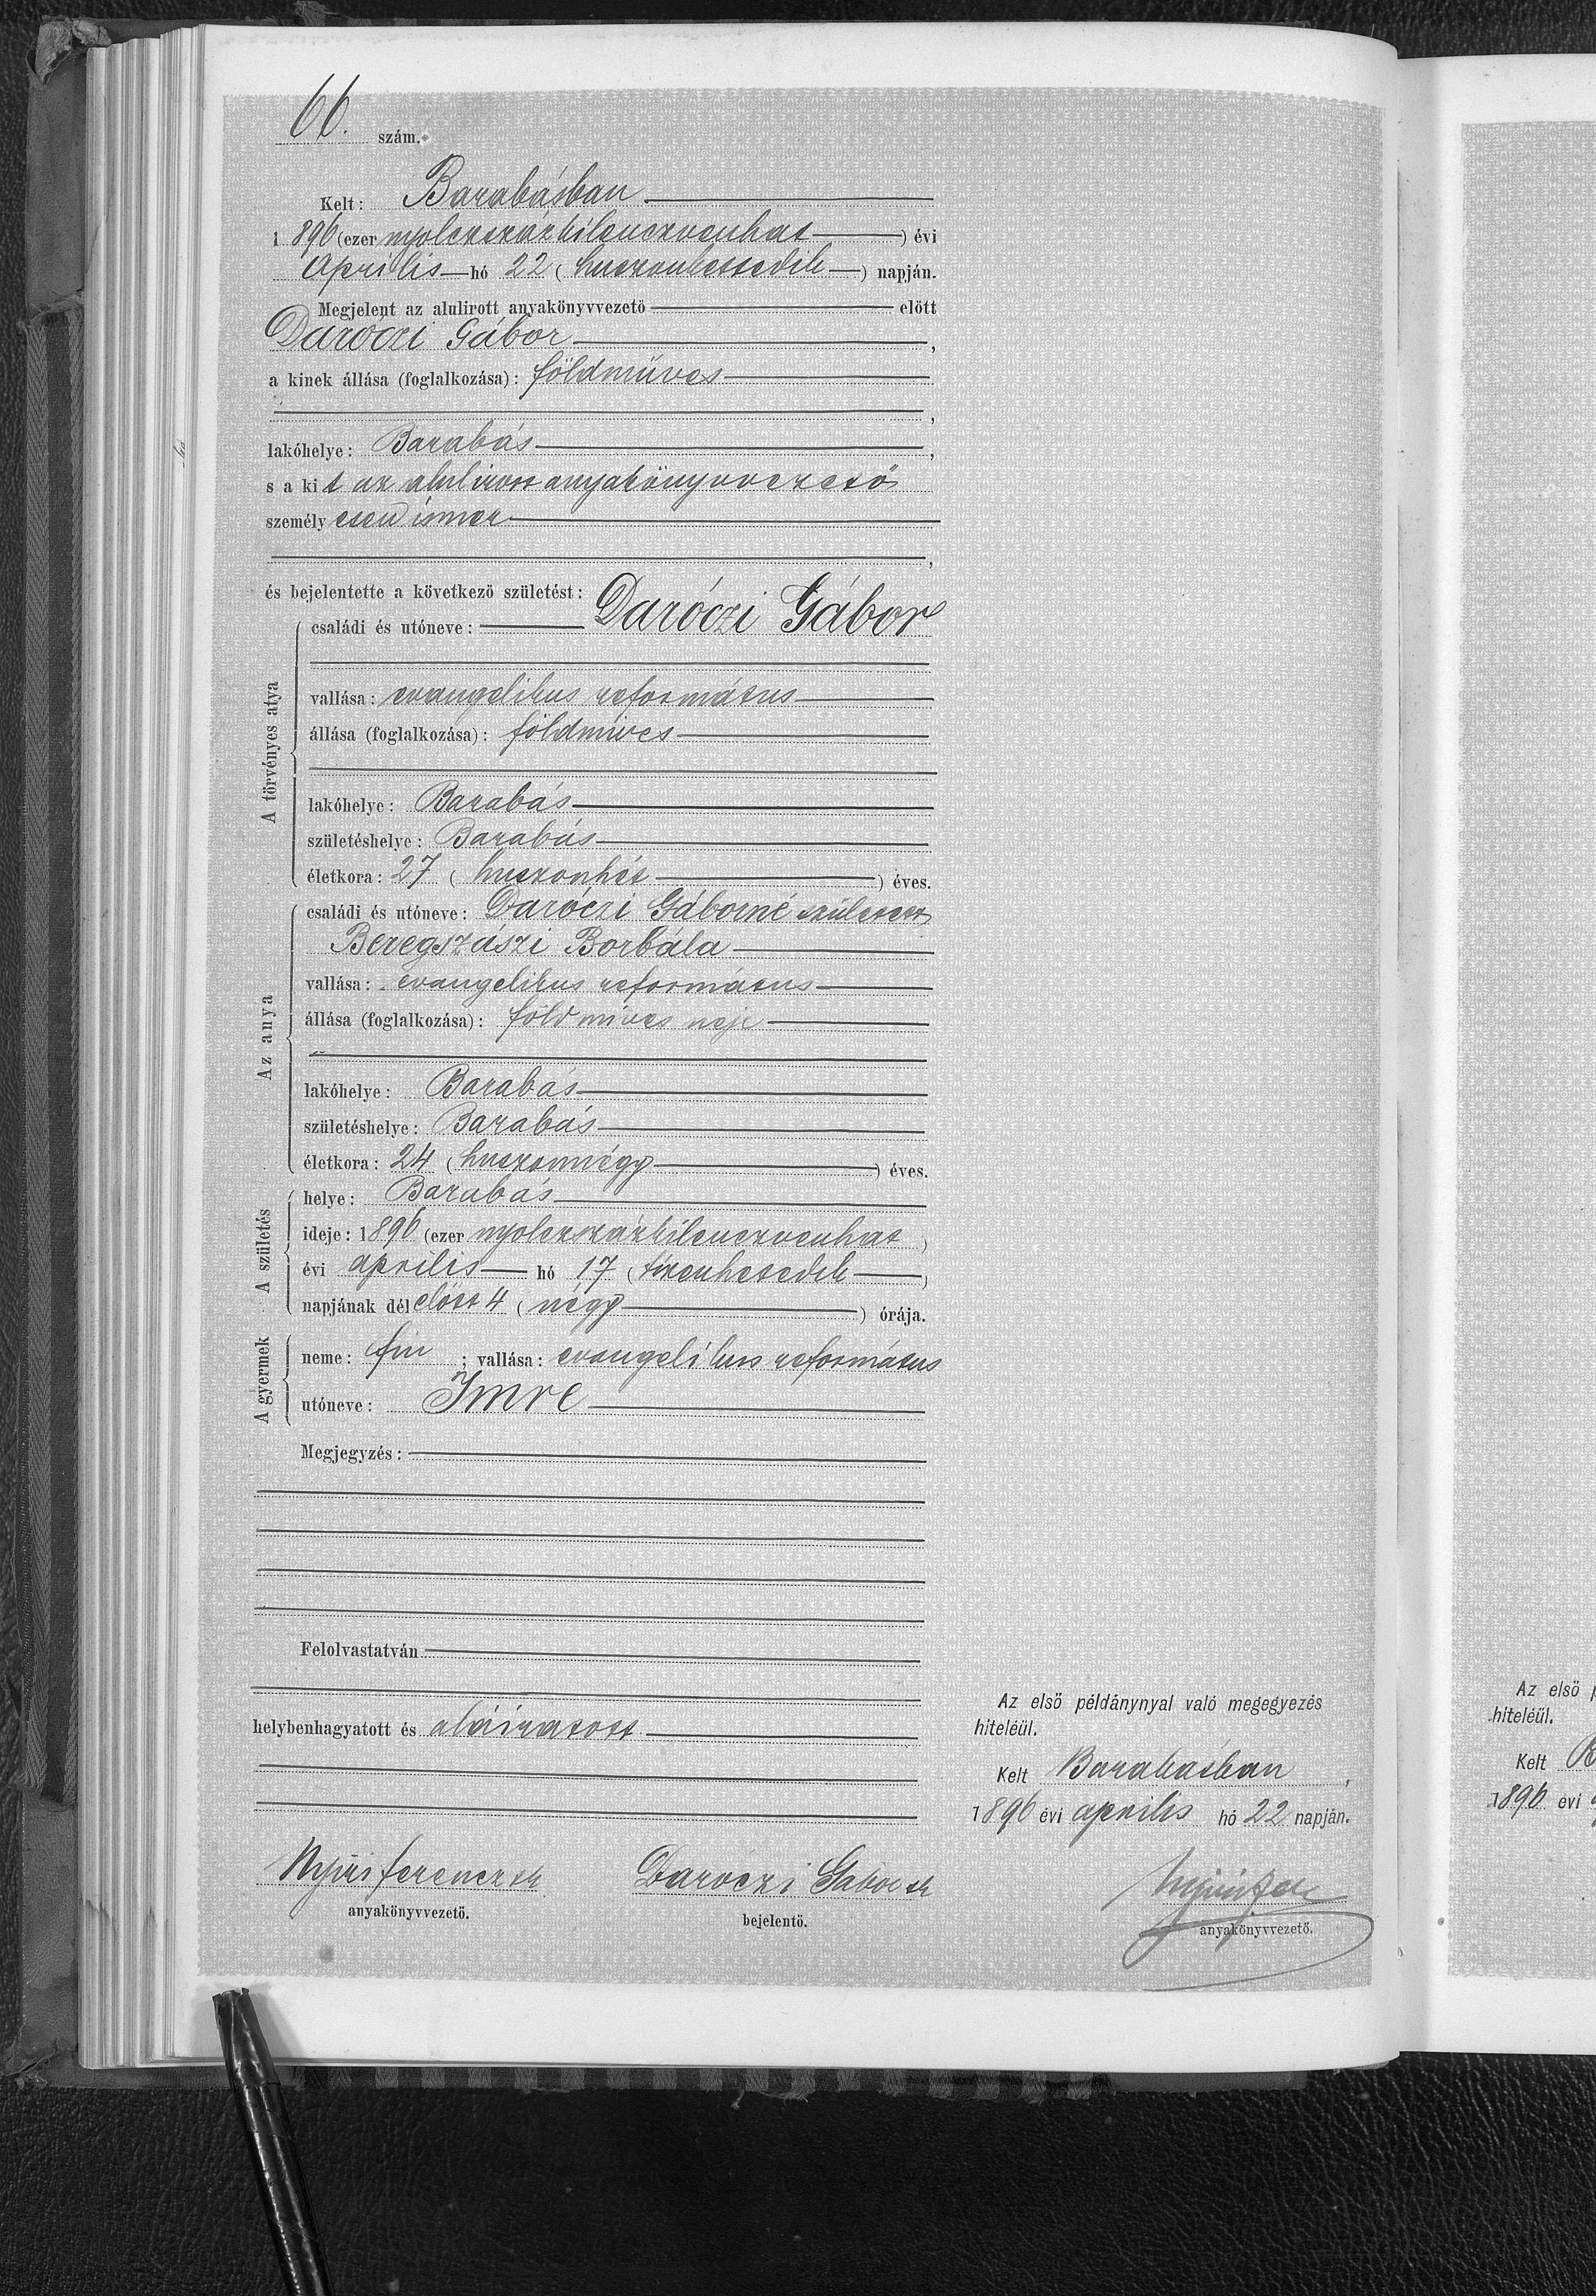 66. szám.
Kelt: Barabásban
1896 (ezer nyolczszázkilenczvenhat) évi
Április hó 22 (huszonkettedik) napján.
Megjelent az alulirott anyakönyvvezető előtt
Daróczi Gábor,
a kinek állása (foglalkozása): földmüves
,
lakóhelye: Barabás,
s a kit az alulirott anyakönyvvezető
személyesen ismer
,
és bejelentette a következő születést:
A törvényes atya
családi és utóneve: Daróczi Gábor
vallása: evangelikus református
állása (foglalkozása): földmives
lakóhelye: Barabás
születéshelye: Barabás
életkora: 27 (huszonhét) éves.
Az anya
családi és utóneve: Daróczi Gáborné született
Beregszászi Borbála
vallása: evangelikus református
állása (foglalkozása): földmives neje
lakóhelye: Barabás
születéshelye: Barabás
életkora: 24 (huszonnégy) éves.
A születés
helye: Barabás
ideje: 1896 (ezer nyolczszázkilenczvenhat)
évi április hó 17 (tizenhetedik)
napjának délelőtt 4 (négy) órája.
A gyermek
neme: fiu; vallása: evangelikus református
utóneve: Imre
Megjegyzés:
Felolvastatván
helybenhagyatott és aláiratott.
Nyiri Ferencz sk
anyakönyvvezető.
Daróczi Gábor sk
bejelentő.
Az első példánynyal való megegyezés
hiteléül.
Kelt Barabásban,
1896 évi április hó 22 napján.
anyakönyvvezető.
Az első
hiteléül.
Kelt
1896 évi